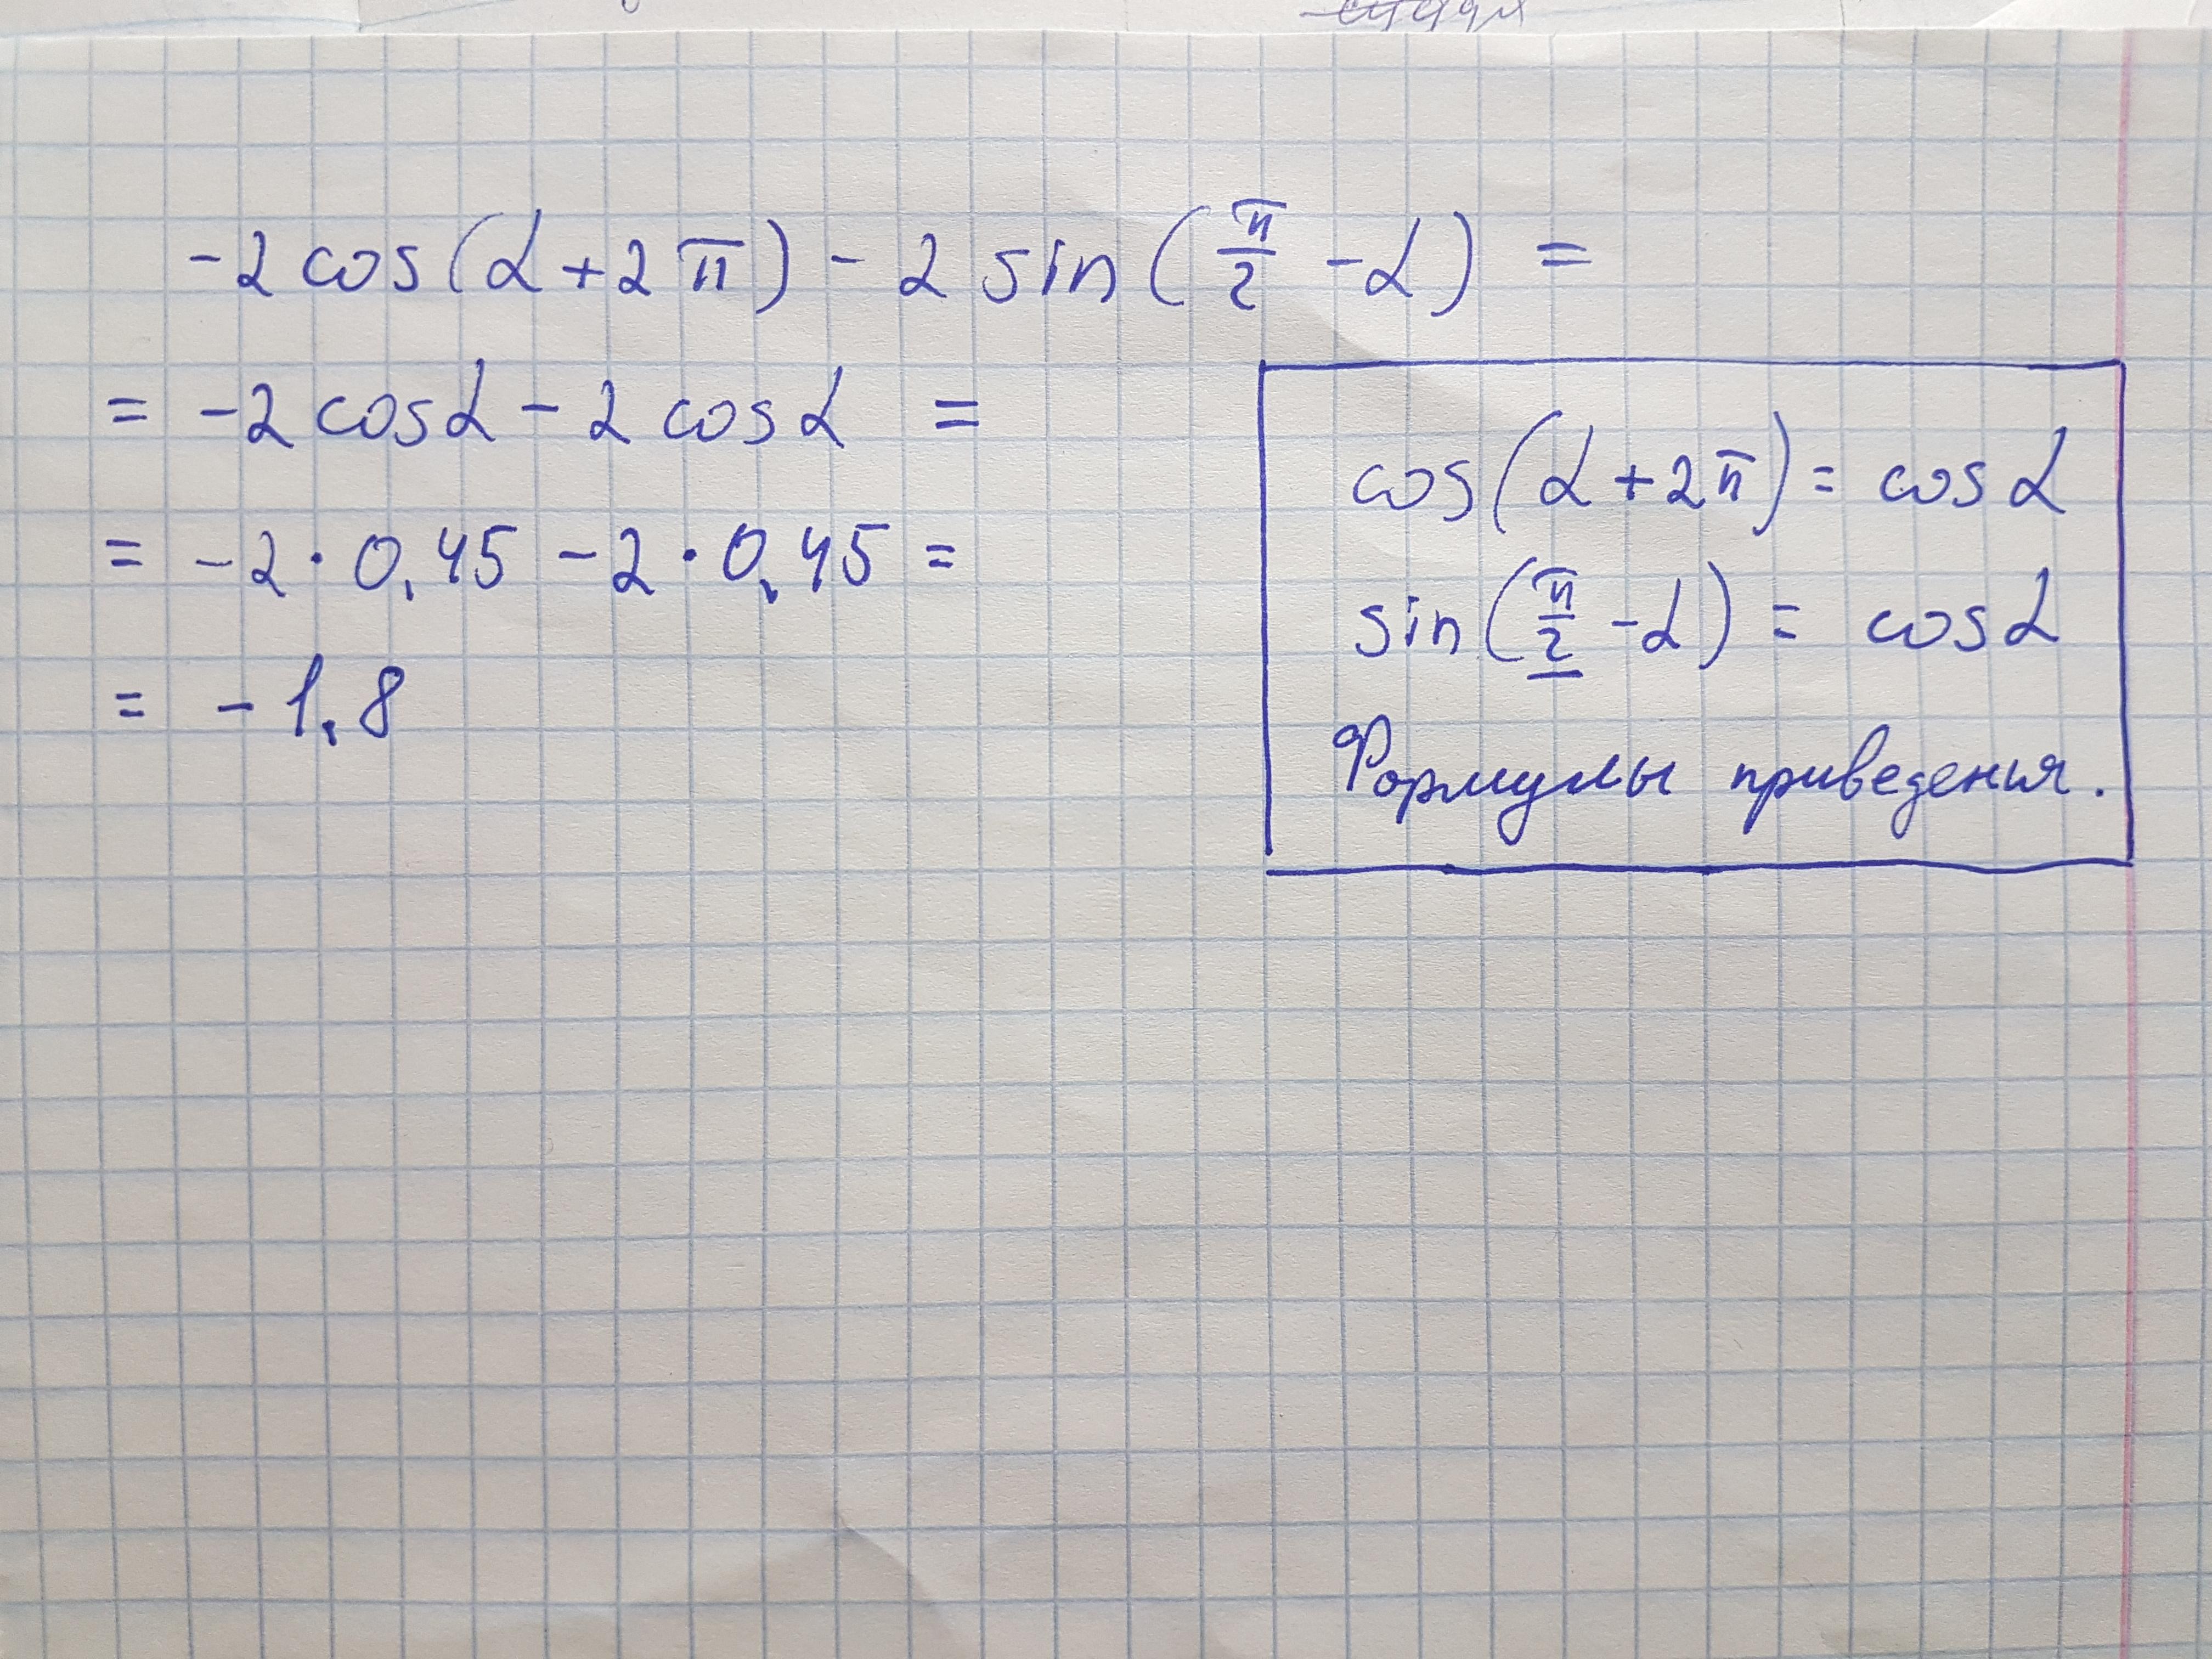 -2 cos(α + 2π) - 2 sin(π/2 - α) =
= -2 cosα - 2 cosα =
= -2 · 0,45 - 2 · 0,45 =
= -1,8
cos(α + 2π) = cosα
sin(π/2 - α) = cosα
Формулы приведения.